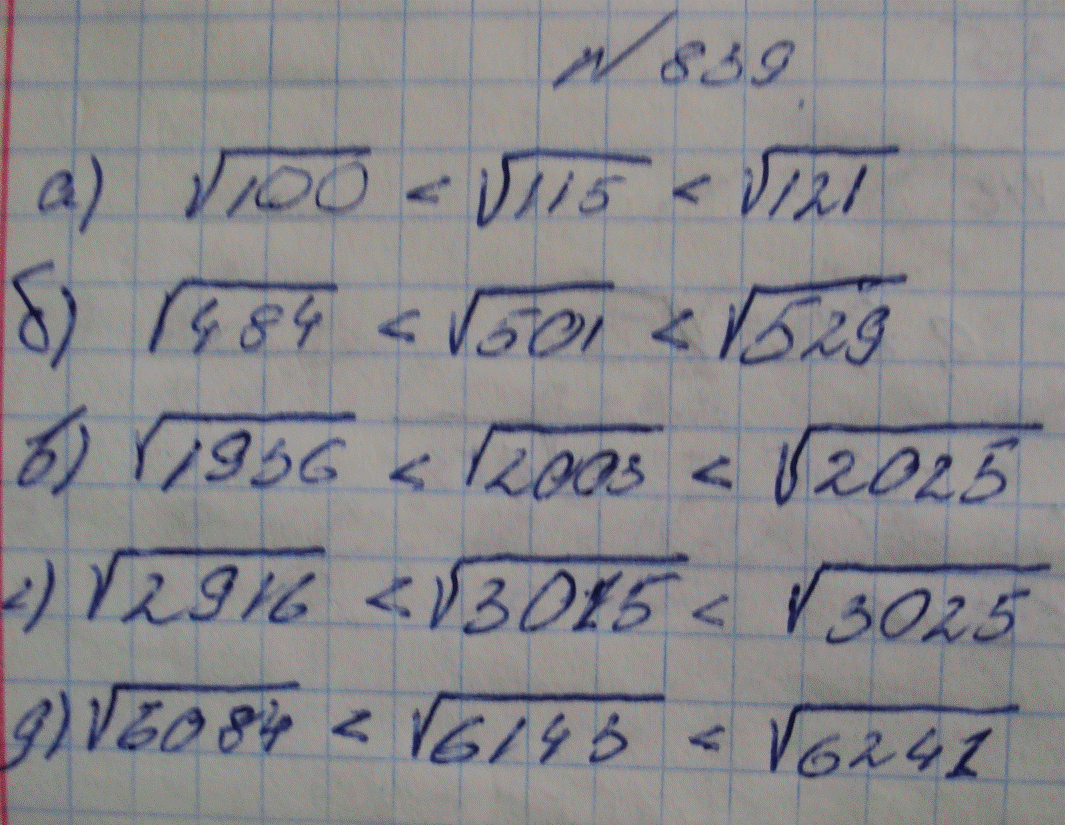 № 839
а) √100 < √115 < √121
б) √484 < √501 < √529
в) √1936 < √2003 < √2025
г) √2916 < √3015 < √3025
д) √6084 < √6143 < √6241